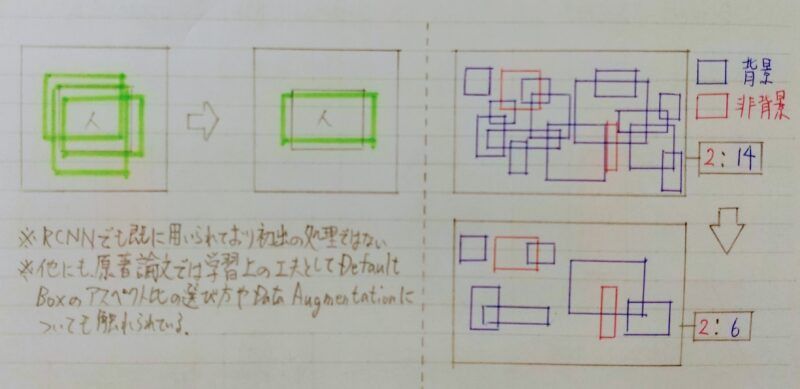 人
人
※RCNNでも既に用いられており初出の処理ではない
※他にも、原著論文では学習上の工夫としてDefault
Boxのアスペクト比の選び方やData Augmentationに
ついても触れられている。
背景
非背景
2:14
2:6